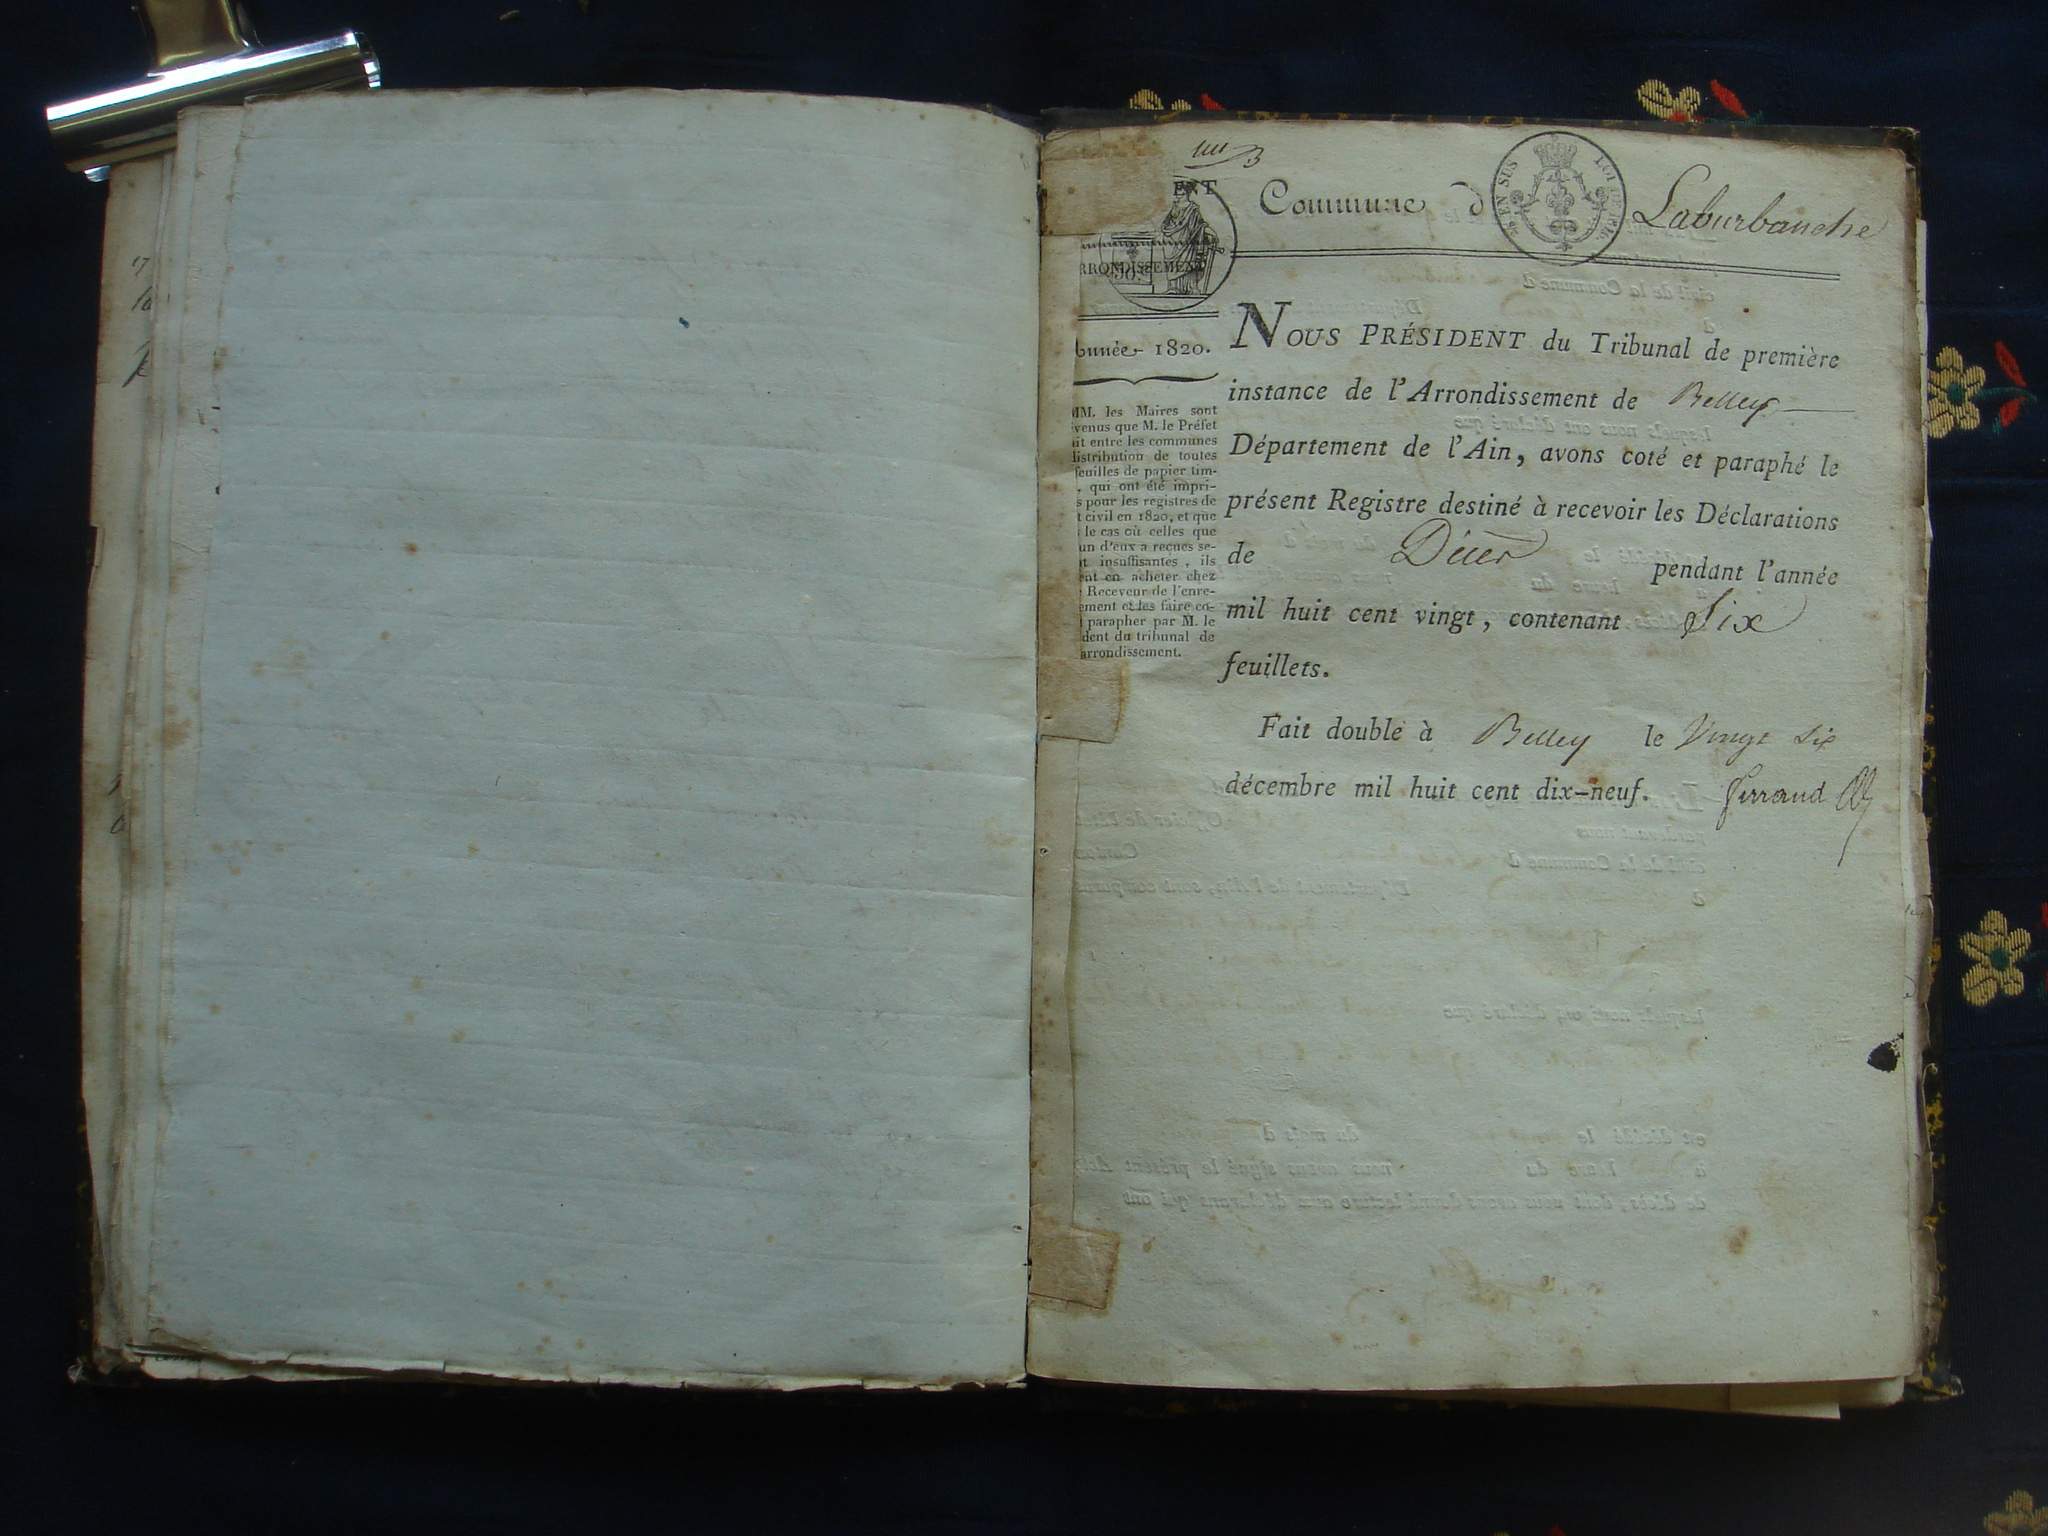 Commune d Laburbanche
EN SUS LOI DE 1816
ENT
RRONDISSEMENT
Année 1820.
MM. les Maires sont
évenus que M. le Préfet
ait entre les communes
distribution de toutes
feuilles de papier tim-
, qui ont été impri-
s pour les registres de
t civil en 1820, et que
le cas où celles que
un d'eux a reçues se-
t insuffisantes, ils
ent en acheter chez
Receveur de l'enre-
ement et les faire co-
parapher par M. le
dent du tribunal de
arrondissement.
NOUS PRÉSIDENT du Tribunal de première
instance de l'Arrondissement de Belley
Département de l'Ain, avons coté et paraphé le
présent Registre destiné à recevoir les Déclarations
de Décès pendant l'année
mil huit cent vingt, contenant Six
feuillets.
Fait double à Belley le Vingt Six
décembre mil huit cent dix-neuf. Ferrand